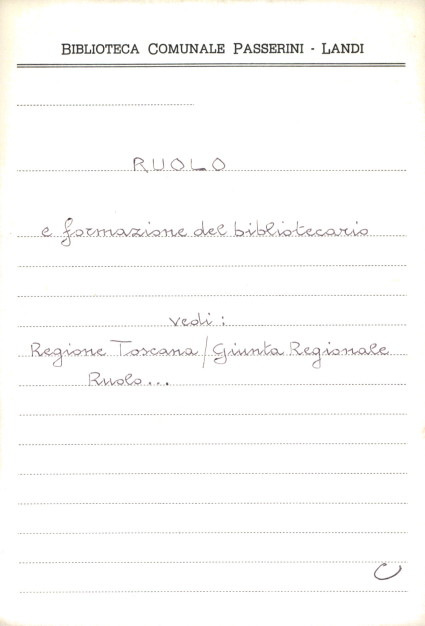 BIBLIOTECA COMUNALE PASSERINI - LANDI
RUOLO
e formazione del bibliotecario
vedi :
Regione Toscana / Giunta Regionale
Ruolo...
C